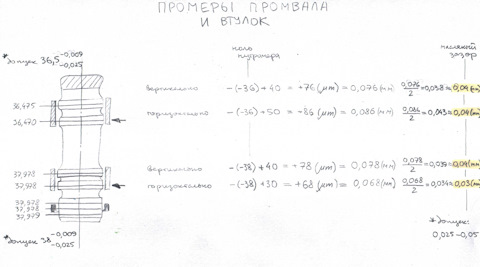 ПРОМЕРЫ ПРОМВАЛА
И ВТУЛОК
*допуск 36,5 -0,009 -0,025
масляный
зазор
вертикально -(-36)+40 = +76 (µm) = 0,076 (mm) 0,076/2 = 0,038 ≈ 0,04 (mm)
горизонтально -(-36)+50 = +86 (µm) = 0,086 (mm) 0,086/2 = 0,043 ≈ 0,04 (mm)
36,475
36,470
вертикально -(-38)+40 = +78 (µm) = 0,078 (mm) 0,078/2 = 0,039 ≈ 0,04 (mm)
горизонтально -(-38)+30 = +68 (µm) = 0,068 (mm) 0,068/2 = 0,034 ≈ 0,03 (mm)
37,978
37,978
37,978
37,978
37,979
*допуск 38 -0,009 -0,025
*допуск:
0,025-0,05